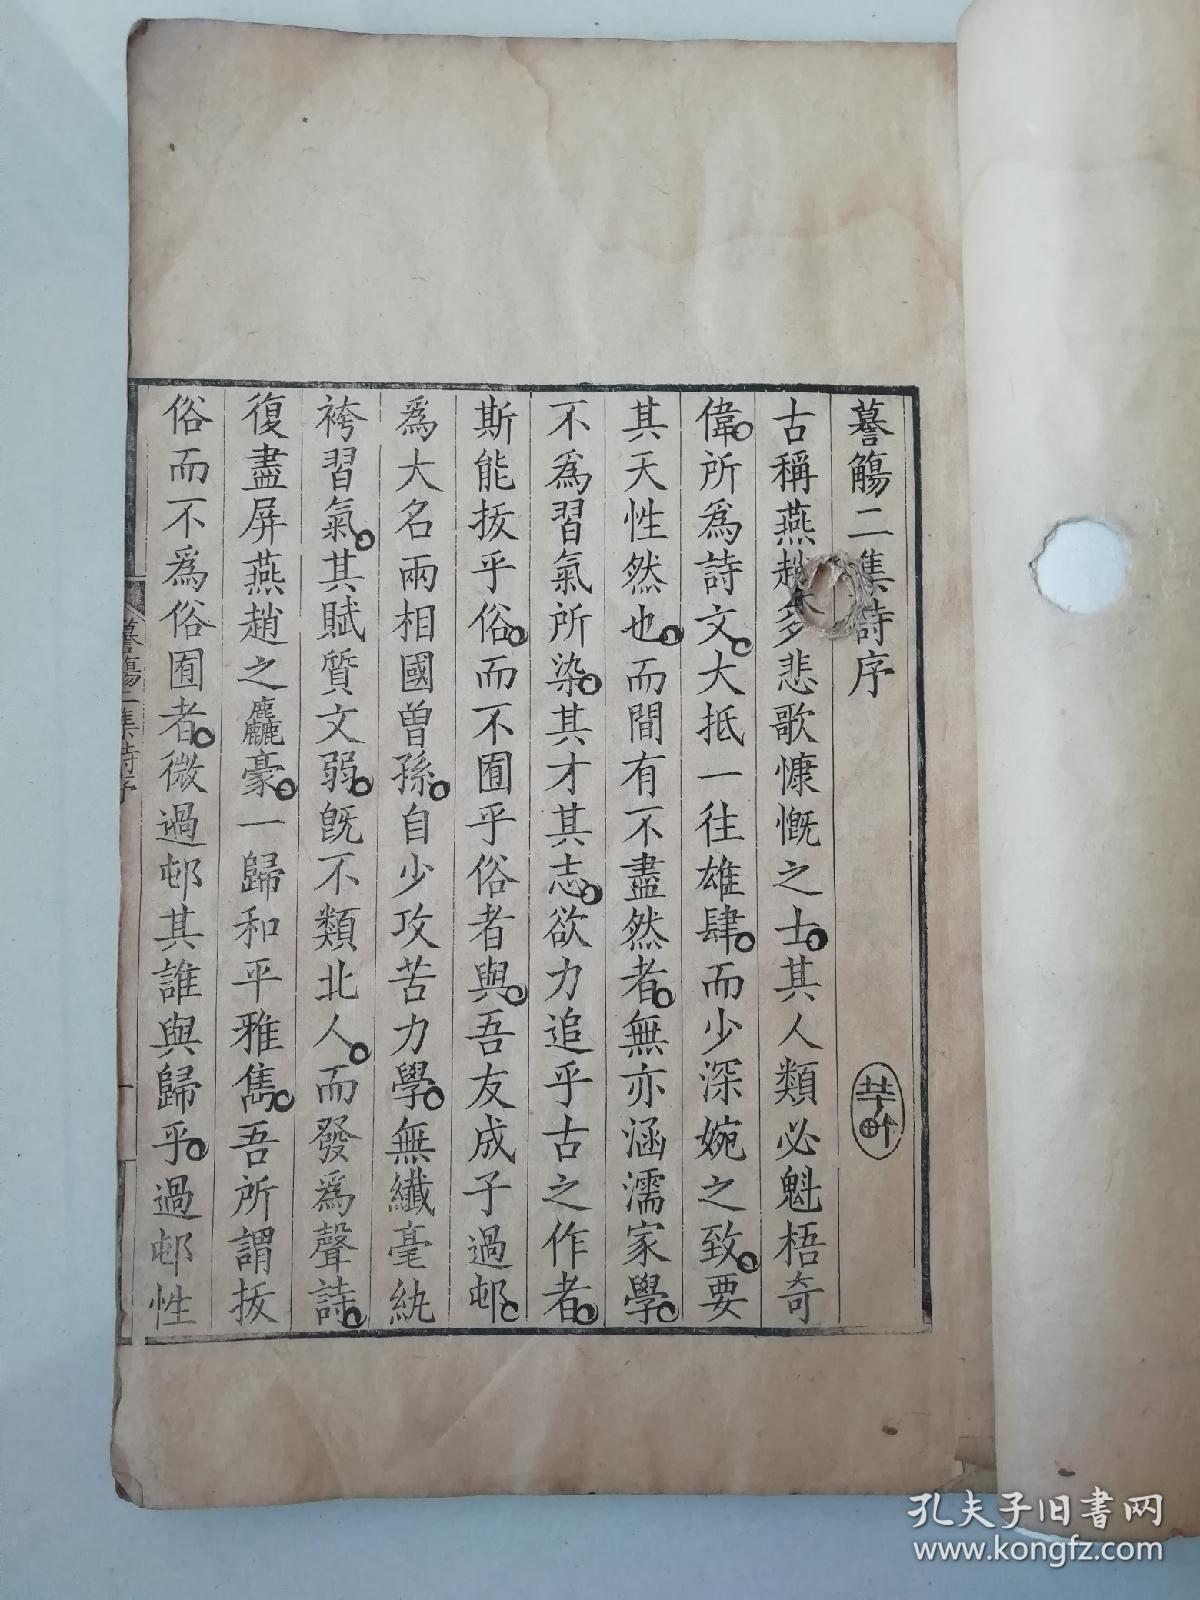 謩觴二集詩序
古稱燕趙多悲歌慷慨之士其人類必魁梧奇
偉所爲詩文大抵一往雄肆而少深婉之致要
其天性然也而間有不盡然者無亦涵濡家學
不爲習氣所染其才其志欲力追乎古之作者
斯能拔乎俗而不囿乎俗者與吾友成子過邨
爲大名兩相國曾孫自少攻苦力學無纖毫紈
袴習氣其賦質文弱旣不類北人而發爲聲詩
復盡屏燕趙之麤豪一歸和平雅雋吾所謂拔
俗而不爲俗囿者微過邨其誰與歸乎過邨性
孔夫子旧书网
www.kongfz.com